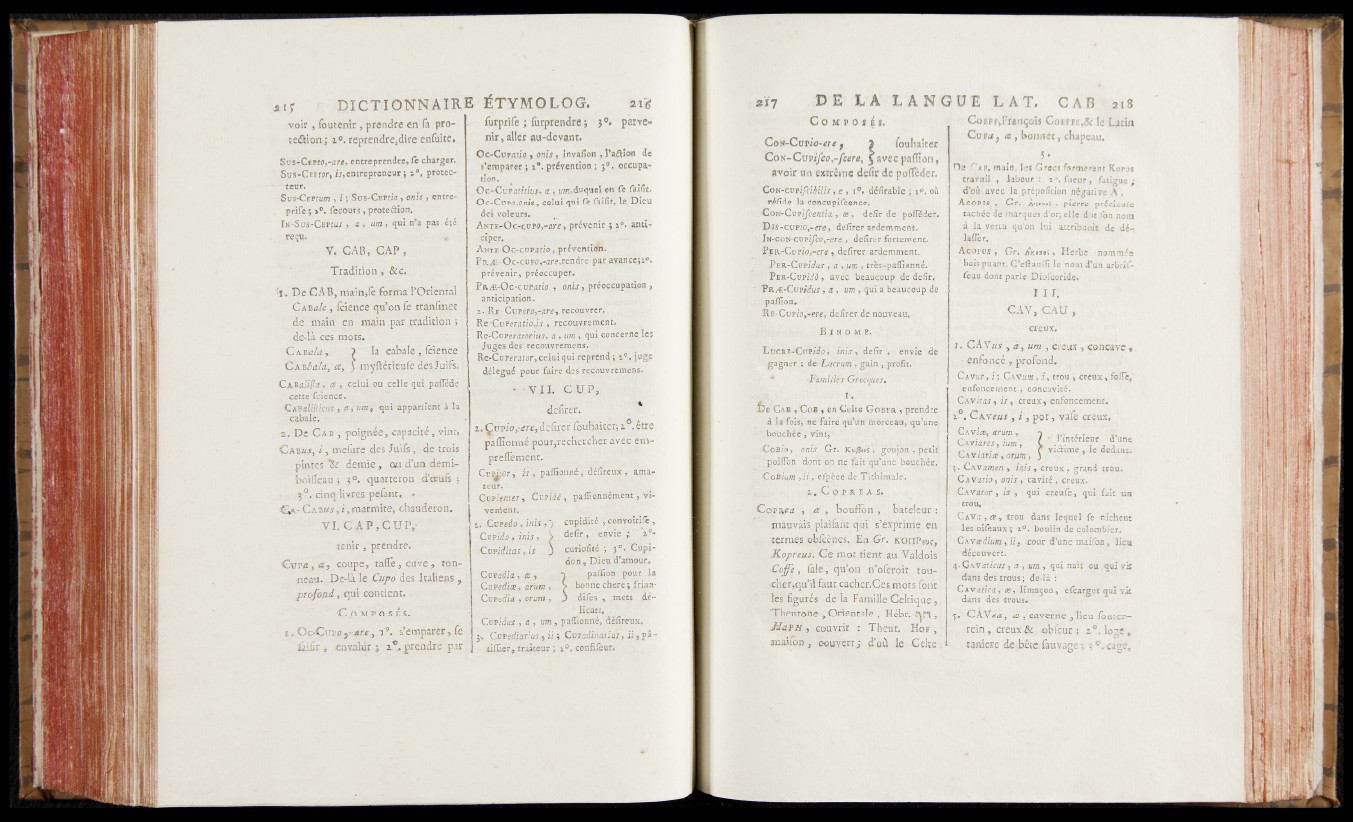 215 DICTIONNAIRE ÉTYMOLOG. 216
voir, ſoutenir, prendre en ſa pro-
tection; 2°. reprendre, dire enſuite.
Sus-Cepto,-are, entreprendre, ſe charger.
Sus-Ceptor, is, entrepreneur; 2°, protec-
teur.
Sus-Ceptum, i; Sus-Ceptio, onis, entre-
priſe; 2°. ſecours, protection.
In-Sus-Ceptus, a, um, qui n'a pas été
reçu.
V. CAB, CAP,
Tradition, &c.
1. De CAB, main, ſe forma l'Oriental
Cabale, ſcience qu'on ſe tranſmet
de main en main par tradition;
de-là ces mots.
Cabala, } la cabale, ſcience
Cabbala, æ, } myſtérieuſe des Juifs.
Cabaliſta, æ, celui ou celle qui poſſéde
cette ſcience.
Cabaliſticus, a, um, qui appartient à la
cabale.
2. De Cab, poignée, capacité, vint,
Cabus, i, meſure des Juifs, de trois
pintes & demie, ou d'un demi-
boiſſeau; 2°. quarteron d'œufs;
3°. cinq livres peſant.
Ca-Cabus, i, marmite, chauderon.
VI. CAP, CUP,
tenir, prendre.
Cupa, æ, coupe, taſſe, cuve, ton-
neau. De-là le Cupo des Italiens,
profond, qui contient.
Composés.
1. Oc-Cupo,-are, 1°. s'emparer, ſe
ſaiſir, envahir; 2°. prendre par
ſurpriſe; ſurprendre; 3°. parve-
nir, aller au-devant.
Oc-Cupatio, onis, invaſion, l'action de
s'emparer; 2°. prévention; 3°. occupa-
tion.
Oc-Cupatitius, a, um, duquel on ſe ſaiſit.
Oc-Cupo, onis, celui qui ſe ſaiſit, le Dieu
des voleurs.
Ante-Oc-cupo,-are, prévenir; 2°. anti-
ciper.
Ante Oc-cupatio, prévention.
Præ-Oc-cupo,-are, rendre par avance; 2°.
prévenir, préoccuper.
Præ-Oc-cupatio, onis, préoccupation,
anticipation.
2. Re Cupero,-are, recouvrer.
Re-Cuperatio, is, recouvrement.
Re-Cuperatorius, a, um, qui concerne les
Juges des recouvremens.
Re-Cuperator, celui qui reprend; 2°. juge
délegué pour faire des recouvremens.
VII. CUP,
deſirer.
1. Cupio,-ere, deſirer, ſouhaiter; 2°. être
paſſionné pour, rechercher avec em-
preſſement.
Cupitor, is, paſſionné, déſireux, ama-
teur.
Cupienter, Cupidè, paſſionnément, vi-
vement.
2. Cupedo, inis, } cupidité, convoitiſe,
Cupido, inis, } deſir, envie; 2°.
Cupiditas, is } curioſité; 3°. Cupi-
don, Dieu d'amour.
Cupedia, æ, } paſſion pour la
Cupediæ, arum, } bonne chere; frian-
Cupedia, orum, } diſes, mets dé-
licats.
Cupidus, a, um, paſſionné, déſireux.
3. Cupediarius, ii; Cupedinarius, ii, pâ-
tiſſier, traiteur; 2°. confiſeur.
217 DE LA LANGUE LAT. CAB 218
Composés.
Con-Cupio-ere, } ſouhaiter
Con-Cupiſco,-ſcere, } avec paſſion,
avoir un extrême deſir de poſſéder.
Con-cupiſcibilis, e, 1°. déſirable; 2°. où
réſide la concupiſcence.
Con-Cupiſcentia, æ, deſir de poſſéder.
Dis-cupio,-ere, deſirer ardemment.
In-con-cupiſco,-ere, deſirer fortement.
Per-Cupio,-ere, deſirer ardemment.
Per-Cupidus, a, um, très-paſſionné.
Per-Cupidè, avec beaucoup de deſir.
Præ-Cupidus, a, um, qui a beaucoup de
paſſion.
Re-Cupio,-ere, deſirer de nouveau.
Binome.
Lucri-Cupido, inis, deſir, envie de
gagner; de Lucrum, gain, profit.
Familles Grecques.
1.
De Cab, Cob, en Celte Gobba, prendre
à la fois, ne faire qu'un morceau, qu'une
bouchée, vint,
Cobio, onis Gr. Κωβιος, goujon, petit
poiſſon dont on ne fait qu'une bouchée.
Cobium, ii, eſpèce de Tithimale.
2. Copreas.
Coprea, æ, bouffon, bateleur:
mauvais plaiſant qui s'exprime en
termes obſcènes. En Gr. ΚΟΠΡιας,
Kopreus. Ce mot tient au Valdois
Coffe, ſale, qu'on n'oſeroit tou-
cher, qu'il faut cacher. Ces mots ſont
les figurés de la Famille Celtique,
Theutone, Orientale, Hébr. חף,
HaPH, couvrir: Theut. Hof,
maiſon, couvert; d'où le Celte
Coeff, François Coeffe, & le Latin
Cupa, æ, bonnet, chapeau.
3.
De Cap, main, les Grecs formerent Kopos
travail, labeur: 2°. ſueur, fatigue;
d'où avec la prépoſition négative A,
Acopos, Gr. pierre précieuſe
tachée de marques d'or; elle dut ſon nom
à la vertu qu'on lui attribuoit de dé-
laſſer.
Acopus, Gr. Herbe nommée
bois puant. C'eſt auſſi le nom d'un arbriſ-
ſeau dont parle Dioſcoride.
III.
CAV, CAU,
creux.
1. CAVus, a, um, creux, concave,
enfoncé, profond.
Cavus, i; Cavum, i, trou, creux, foſſe,
enfoncement, concavité.
Cavitas, is, creux, enfoncement.
2°. Caveus, i, pot, vaſe creux.
Caviæ, arum, }
Caviares, ium, } l'intérieur d'une
Caviariæ, arum, } victime, le dedans.
3. Cavamen, inis, creux, grand trou.
Cavatio, onis, cavité, creux.
Cavator, is, qui creuſe, qui fait un
trou.
Cava, æ, trou dans lequel ſe nichent
les oiſeaux; 2°. boulin de colombier.
Cavædium, ii, cour d'une maiſon, lieu
découvert.
4. Cavaticus, a, um, qui naît ou qui vit
dans des trous; de-là:
Cavatica, æ, limaçon, eſcargot qui vit
dans des trous.
5. CAVea, æ, caverne, lieu ſouter-
rein, creux & obſcur; 2°. loge,
taniere de bête ſauvage; 3°. cage,